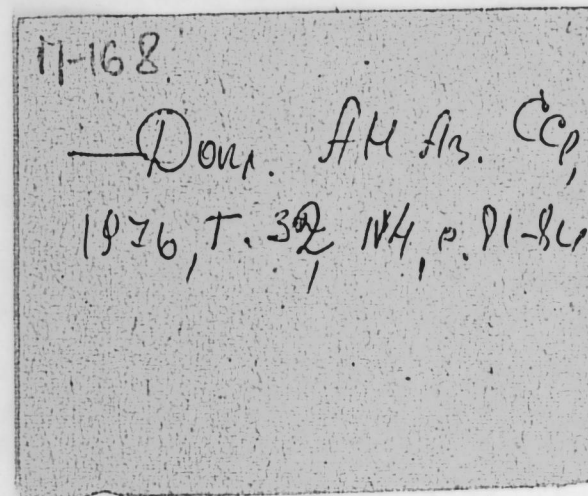 П-168
— Докл. АН Аз. ССР,
1976, т. 32, №4, с. 81-84